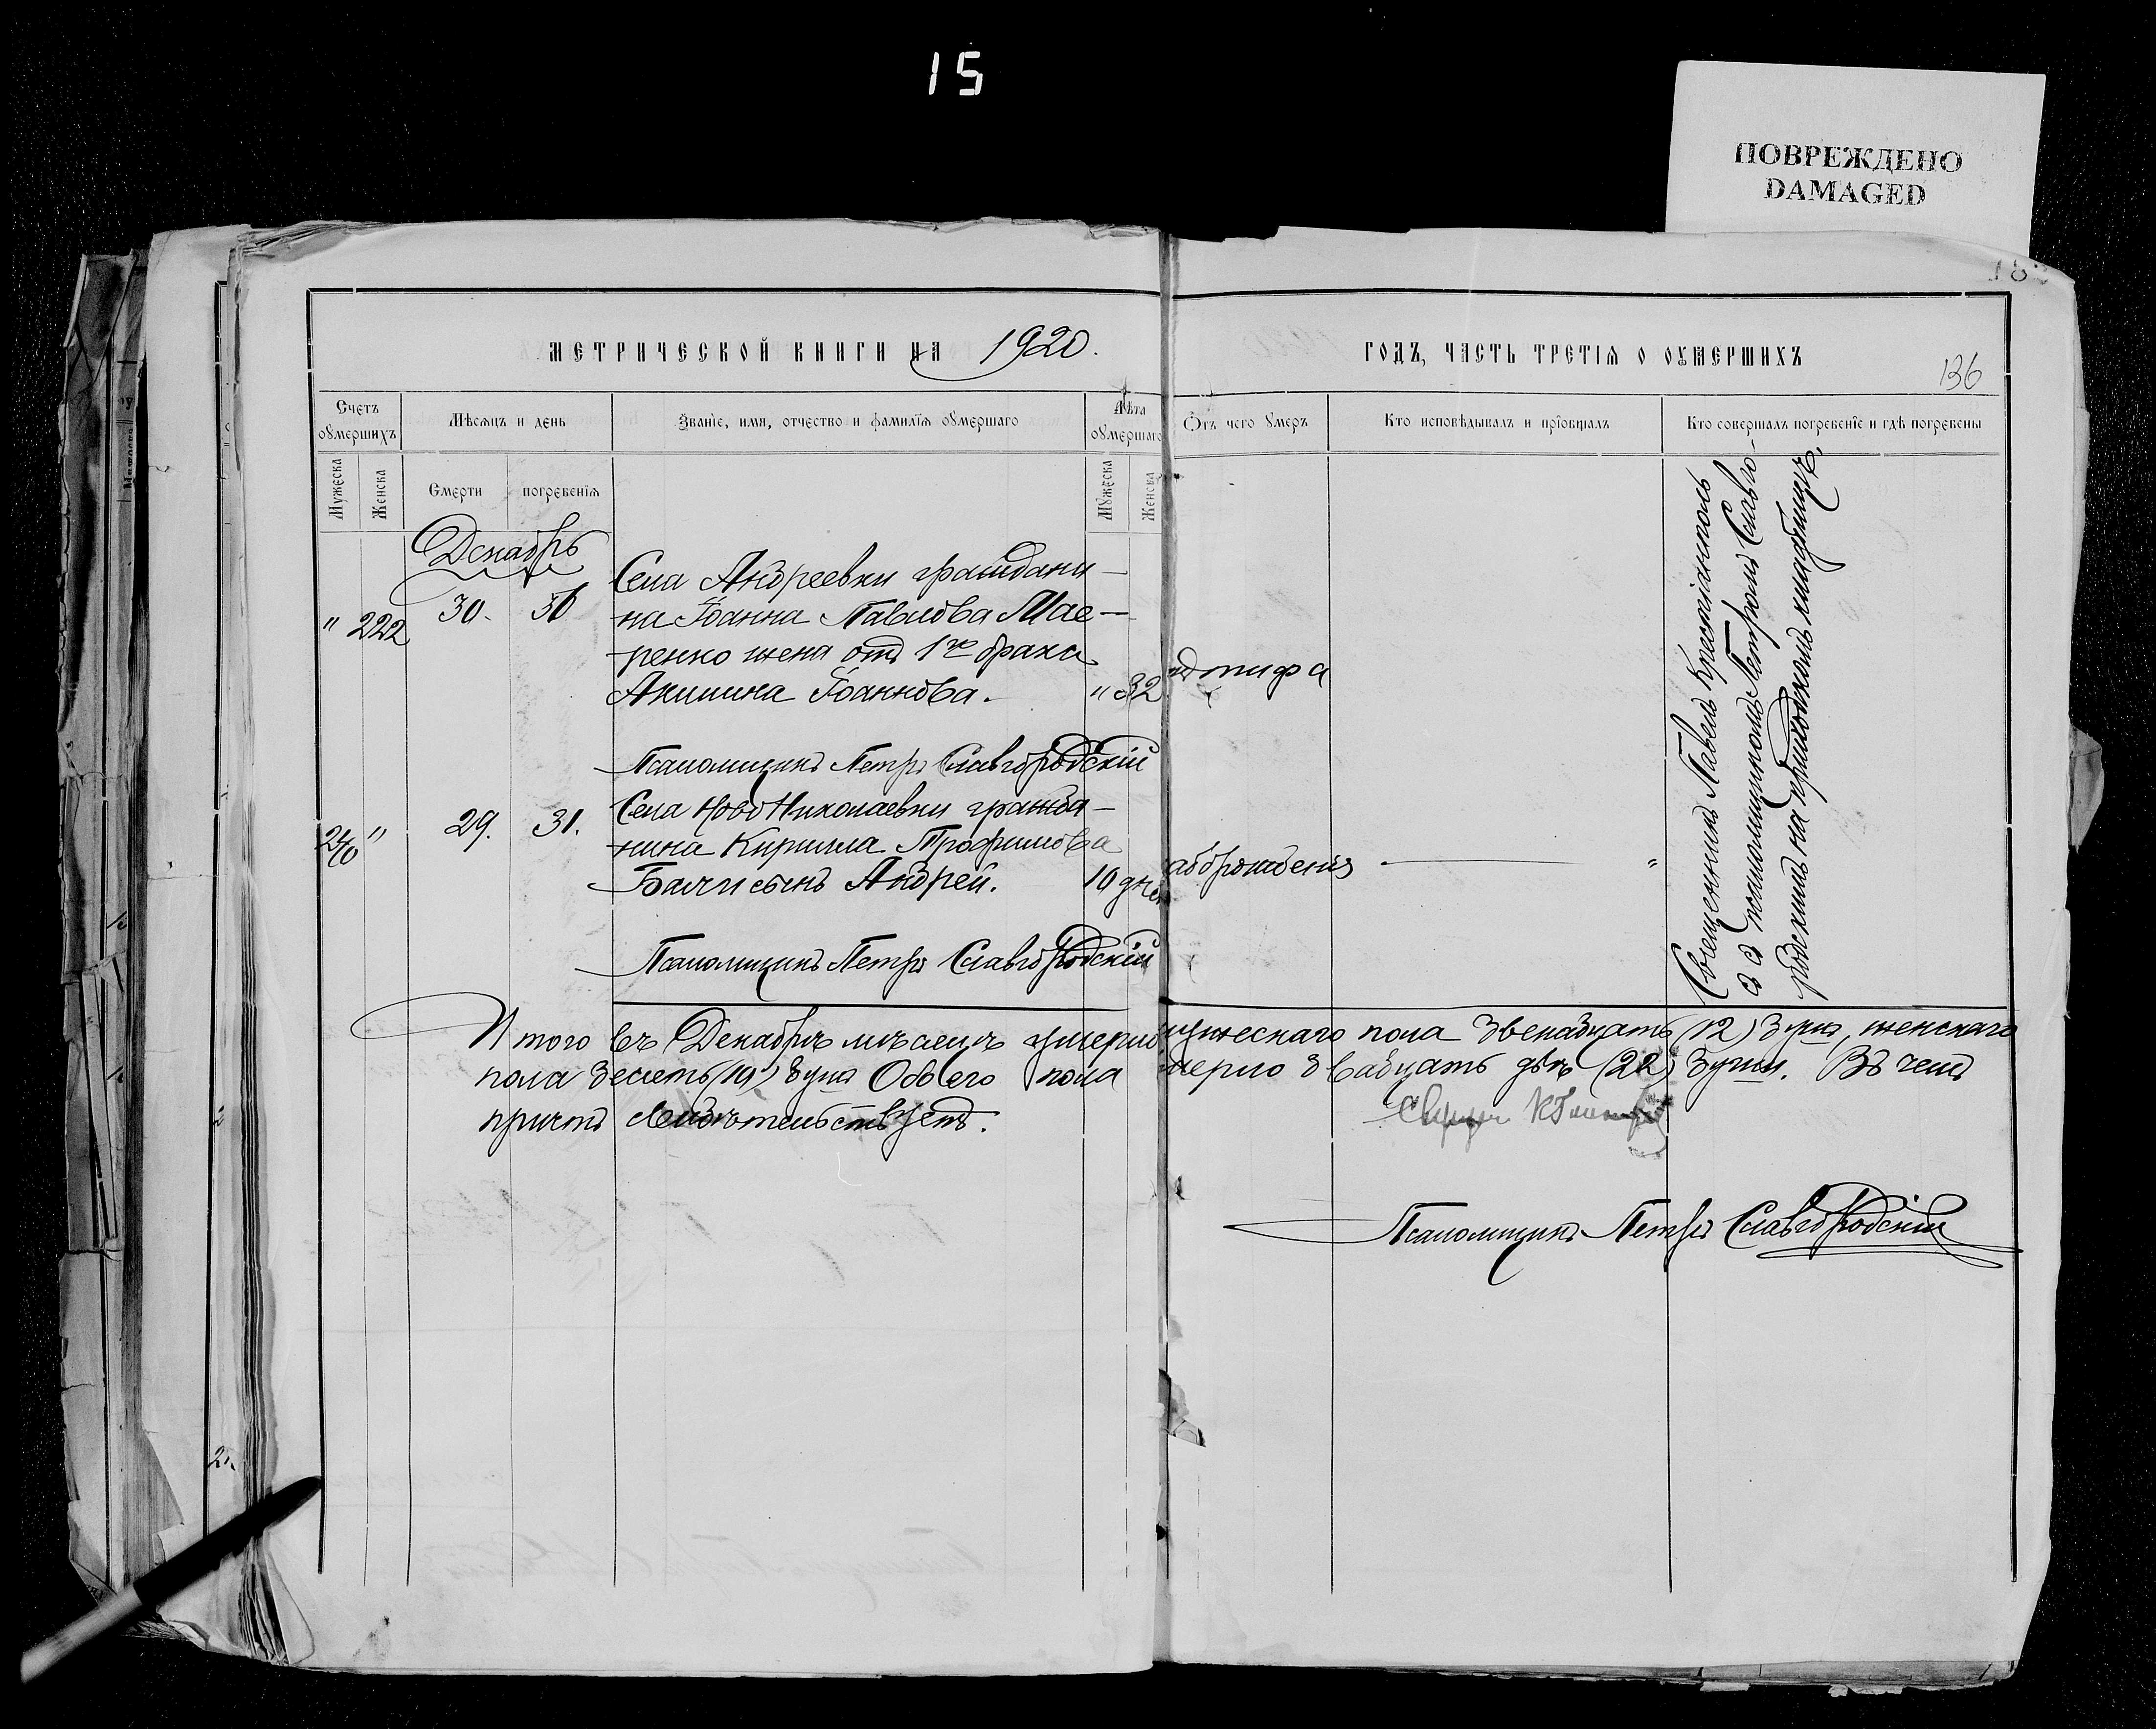 15
ПОВРЕЖДЕНО
DAMAGED
136
МЕТРИЧЕСКОЙ КНИГИ НА 1920.
ГОДЪ, ЧАСТЬ ТРЕТІѦ О ОУМЕРШИХЪ
Счетъ оумершихъ
Мѣсяцъ и день
Званіе, имя, отчество и фамилія оумершаго
Лѣта оумершаго
Отъ чего умеръ
Кто исповѣдывалъ и пріобщалъ
Кто совершалъ погребеніе и гдѣ погребены
Мужеска
Женска
Смерти
погребенія
Мужеска
Женска
Декабрь
" 222
30.
31
Села Андреевки граждани-
на Іоанна Павлова Мае-
ренко жена отъ 1го брака
Акилина Іоаннова.
" 32
отъ тифа
Псаломщикъ Петръ Славгородскій
240 "
29.
31.
Села Ново Николаевки гражда-
нина Кирилла Трофимова
Балчи сынъ Андрей.
10 дней
аборожденія
"
Псаломщикъ Петръ Славгородскій
Священникъ Павелъ Крестіанполь
съ псаломщикомъ Петромъ Славго-
родскимъ на приходскомъ кладбищѣ.
Итого въ Декабрѣ мѣсецѣ умерло мужескаго пола двенадцать (12) душъ, женскаго
пола десеть (10) душъ Обоего пола умерло двадцать двѣ (22) души. Въ чемъ
причтъ свидѣтельствуетъ.
Псаломщикъ Петръ Славгородскій